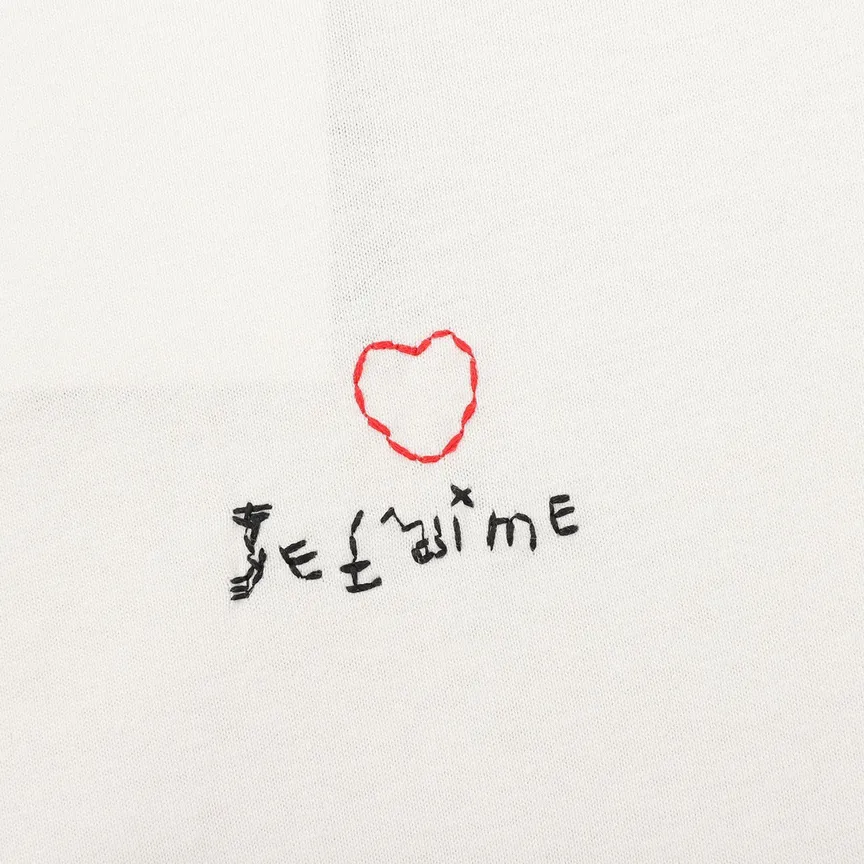 JE t'aimE